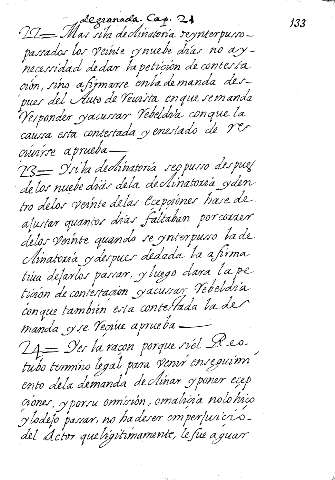 de granada. Cap. 21
133
22 — Mas si la declinatoria se ynterpuso
passados los veinte y nuebe dias no ay
necessidad de dar la peticion de contesta
cion, sino afirmarse en la demanda des-
pues del Auto de Revista en que se manda
Responder y acussar Rebeldia con que la
causa esta contestada y en estado de res
civirse a prueba —
23 — Y si la declinatoria se opusso despues
de los nuebe dias de la declinatoria, y den
tro de los veinte de las Ecepciones hase de
ajustar quantos dias faltaban por correr
de los veinte quando se ynterpusso la de
clinatoria y despues de dada la afirma
tiva dejarlos passar, y luego dara la pe
ticion de contestacion y acussar Rebeldia
con que tambien esta contestada la de
manda y se Recive a prueba —
24 — Y es la racon porque si el Reo
tubo termino legal para venir en seguimi
ento de la demanda declinar y poner ecep
ciones, y por su omision, o malicia no lo hico
y lo dejo passar, no ha de ser en perjuicio
del Actor que legitimamente, le fue a guar